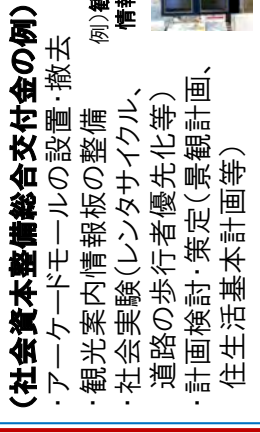 (社会資本整備総合交付金の例)
・アーケードモールの設置・撤去
・観光案内情報板の整備
・社会実験(レンタサイクル、
道路の歩行者優先化等)
・計画検討・策定(景観計画、
住生活基本計画等)
例)観
情報